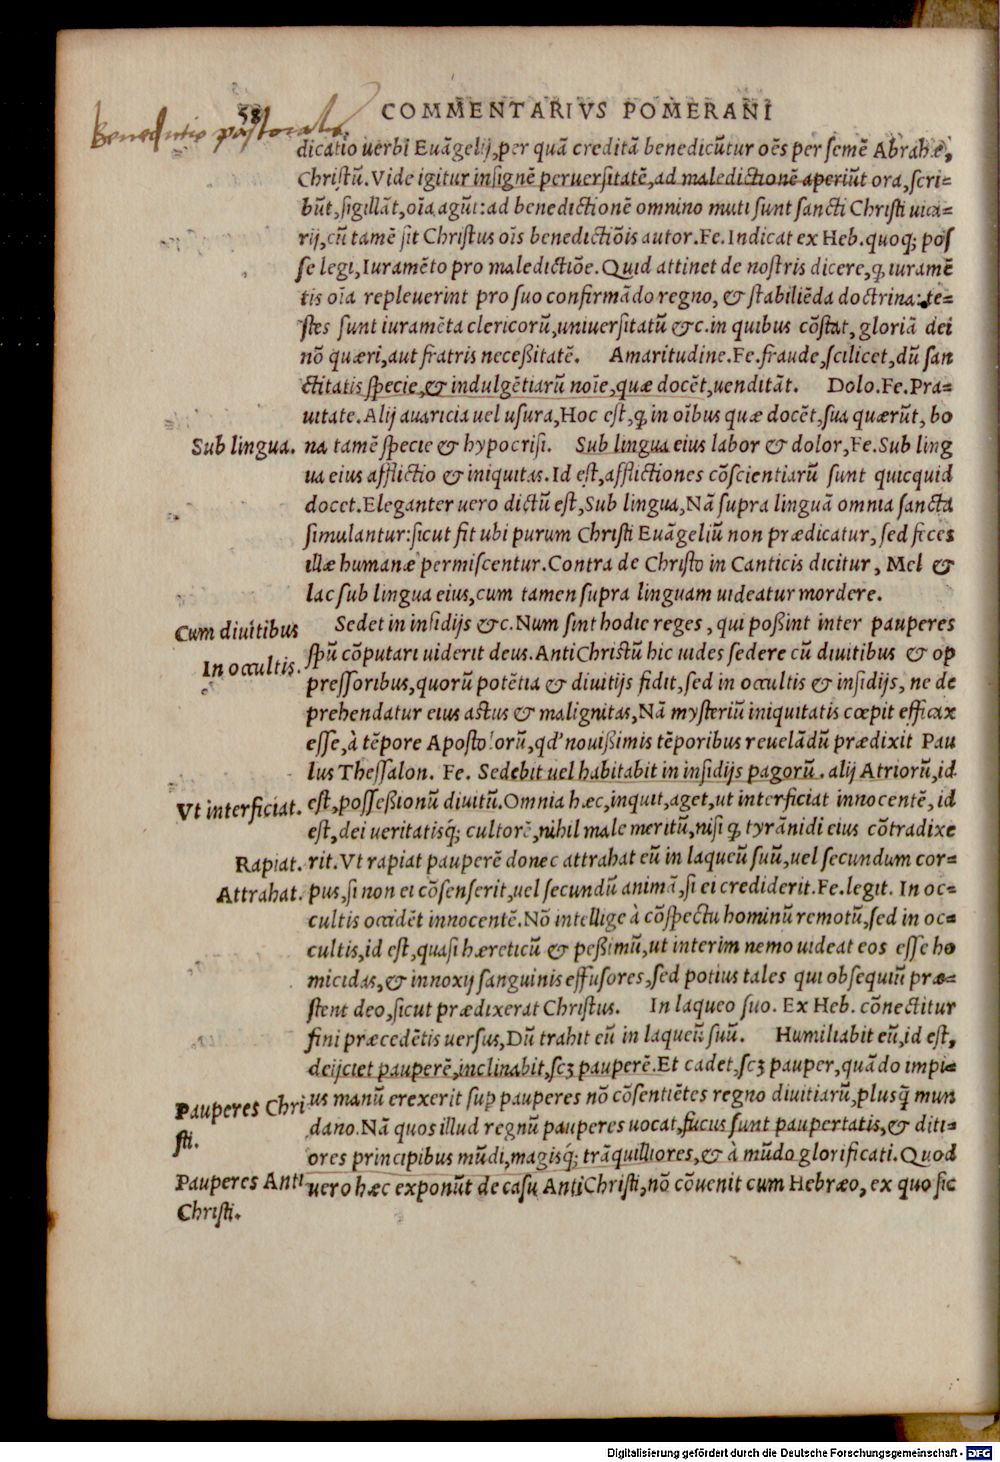 58 COMMENTARIVS POMERANI
Benedictio pastoralis.
dicatio uerbi Euãgelij, per quã creditã benedicũtur oẽs per semẽ Abrahæ,
Christũ. Vide igitur insignẽ peruersitatẽ, ad maledictionẽ aperiũt ora, scri-
bũt, sigillãt, oĩa agũt: ad benedictionẽ omnino muti sunt sancti Christi uica-
rij, cũ tamẽ sit Christus oĩs benedictiõis autor. Fe. Indicat ex Heb. quoq; pos
se legi, Iuramẽto pro maledictiõe. Quid attinet de nostris dicere, q̃ iuramẽ
tis oĩa repleuerint pro suo confirmãdo regno, & stabiliẽda doctrina: te-
stes sunt iuramẽta clericorũ, uniuersitatũ &c. in quibus cõstat, gloriã dei
nõ quæri, aut fratris necessitatẽ. Amaritudine. Fe. fraude, scilicet, dũ san
ctitatis specie, & indulgẽtiarũ noĩe, quæ docẽt, uenditãt. Dolo. Fe. Pra-
uitate. Alij auaricia uel usura, Hoc est, q̃ in oĩbus quæ docẽt, sua quærũt, bo
Sub lingua. na tamẽ specie & hypocrisi. Sub lingua eius labor & dolor, Fe. Sub ling
ua eius afflictio & iniquitas. Id est, afflictiones cõscientiarũ sunt quicquid
docet. Eleganter uero dictũ est, Sub lingua, Nã supra linguã omnia sancta
simulantur: sicut fit ubi purum Christi Euãgeliũ non prædicatur, sed feces
illæ humanæ permiscentur. Contra de Christo in Canticis dicitur, Mel &
lac sub lingua eius, cum tamen supra linguam uideatur mordere.
Cum diuitibus Sedet in insidijs &c. Num sint hodie reges, qui possint inter pauperes
In occultis. spũ cõputari uiderit deus. AntiChristũ hic uides sedere cũ diuitibus & op
pressoribus, quorũ potẽtia & diuitijs fidit, sed in occultis & insidijs, ne de
prehendatur eius astus & malignitas, Nã mysteriũ iniquitatis cœpit efficax
esse, à tẽpore Apostolorũ, qd' nouissimis tẽporibus reuelãdũ prædixit Pau
lus Thessalon. Fe. Sedebit uel habitabit in insidijs pagorũ. alij Atriorũ, id
Vt interficiat. est, possessionũ diuitũ. Omnia hæc, inquit, aget, ut interficiat innocentẽ, id
est, dei ueritatisq́; cultorẽ, nihil male meritũ, nisi q̃ tyrãnidi eius cõtradixe
Rapiat. rit. Vt rapiat pauperẽ donec attrahat eũ in laqueũ suũ, uel secundum cor-
Attrahat. pus, si non ei cõsenserit, uel secundũ animã, si ei crediderit. Fe. legit. In oc-
cultis occidẽt innocentẽ. Nõ intellige à cõspectu hominũ remotũ, sed in oc-
cultis, id est, quasi hæreticũ & pessimũ, ut interim nemo uideat eos esse ho
micidas, & innoxij sanguinis effusores, sed potius tales qui obsequiũ præ-
stent deo, sicut prædixerat Christus. In laqueo suo. Ex Heb. cõnectitur
fini præcedẽtis uersus, Dũ trahit eũ in laqueũ suũ. Humiliabit eũ, id est,
deijciet pauperẽ, inclinabit, scȝ pauperẽ. Et cadet, scȝ pauper, quãdo impi-
Pauperes Chri us manũ erexerit sup̱ pauperes nõ cõsentiẽtes regno diuitiarũ, plusq̃ mun
sti. dano. Nã quos illud regnũ pauperes uocat, fucus sunt paupertatis, & diti-
ores principibus mũdi, magisq́; trãquilliores, & à mũdo glorificati. Quod
Pauperes Anti uero hæc exponũt de casu AntiChristi, nõ cõuenit cum Hebræo, ex quo sic
Christi.
Digitalisierung gefördert durch die Deutsche Forschungsgemeinschaft - DFG